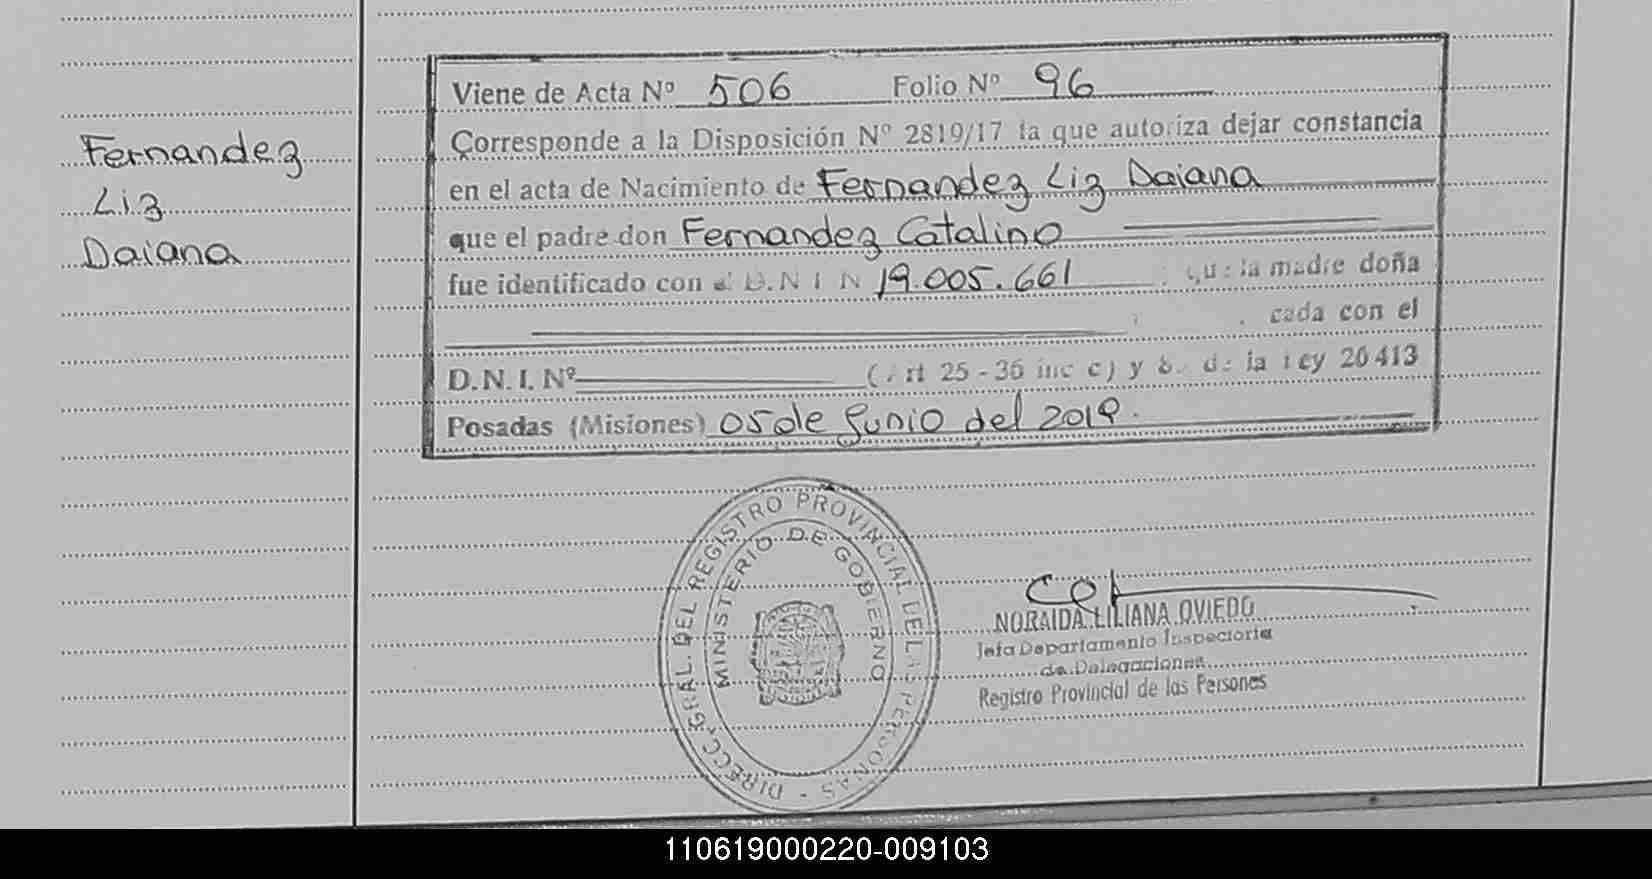 Fernandez
Liz
Daiana
Viene de Acta Nº 506 Folio Nº 96
Corresponde a la Disposición Nº 2819/17 la que autoriza dejar constancia
en el acta de Nacimiento de Fernandez Liz Daiana
que el padre don Fernandez Catalino
fue identificado con el D.N I N 19.005.661 que la madre doña
cada con el
D.N.I. Nº (Art 25 - 36 inc c) y de la Ley 26413
Posadas (Misiones) 05 de Junio del 2019.
DIRECC. GRAL. DEL REGISTRO PROVINCIAL DE LAS PERSONAS -
MINISTERIO DE GOBIERNO
NORAIDA LILIANA OVIEDO
Jefa Departamento Inspectoria
de Delegaciones
Registro Provincial de las Personas
110619000220-009103